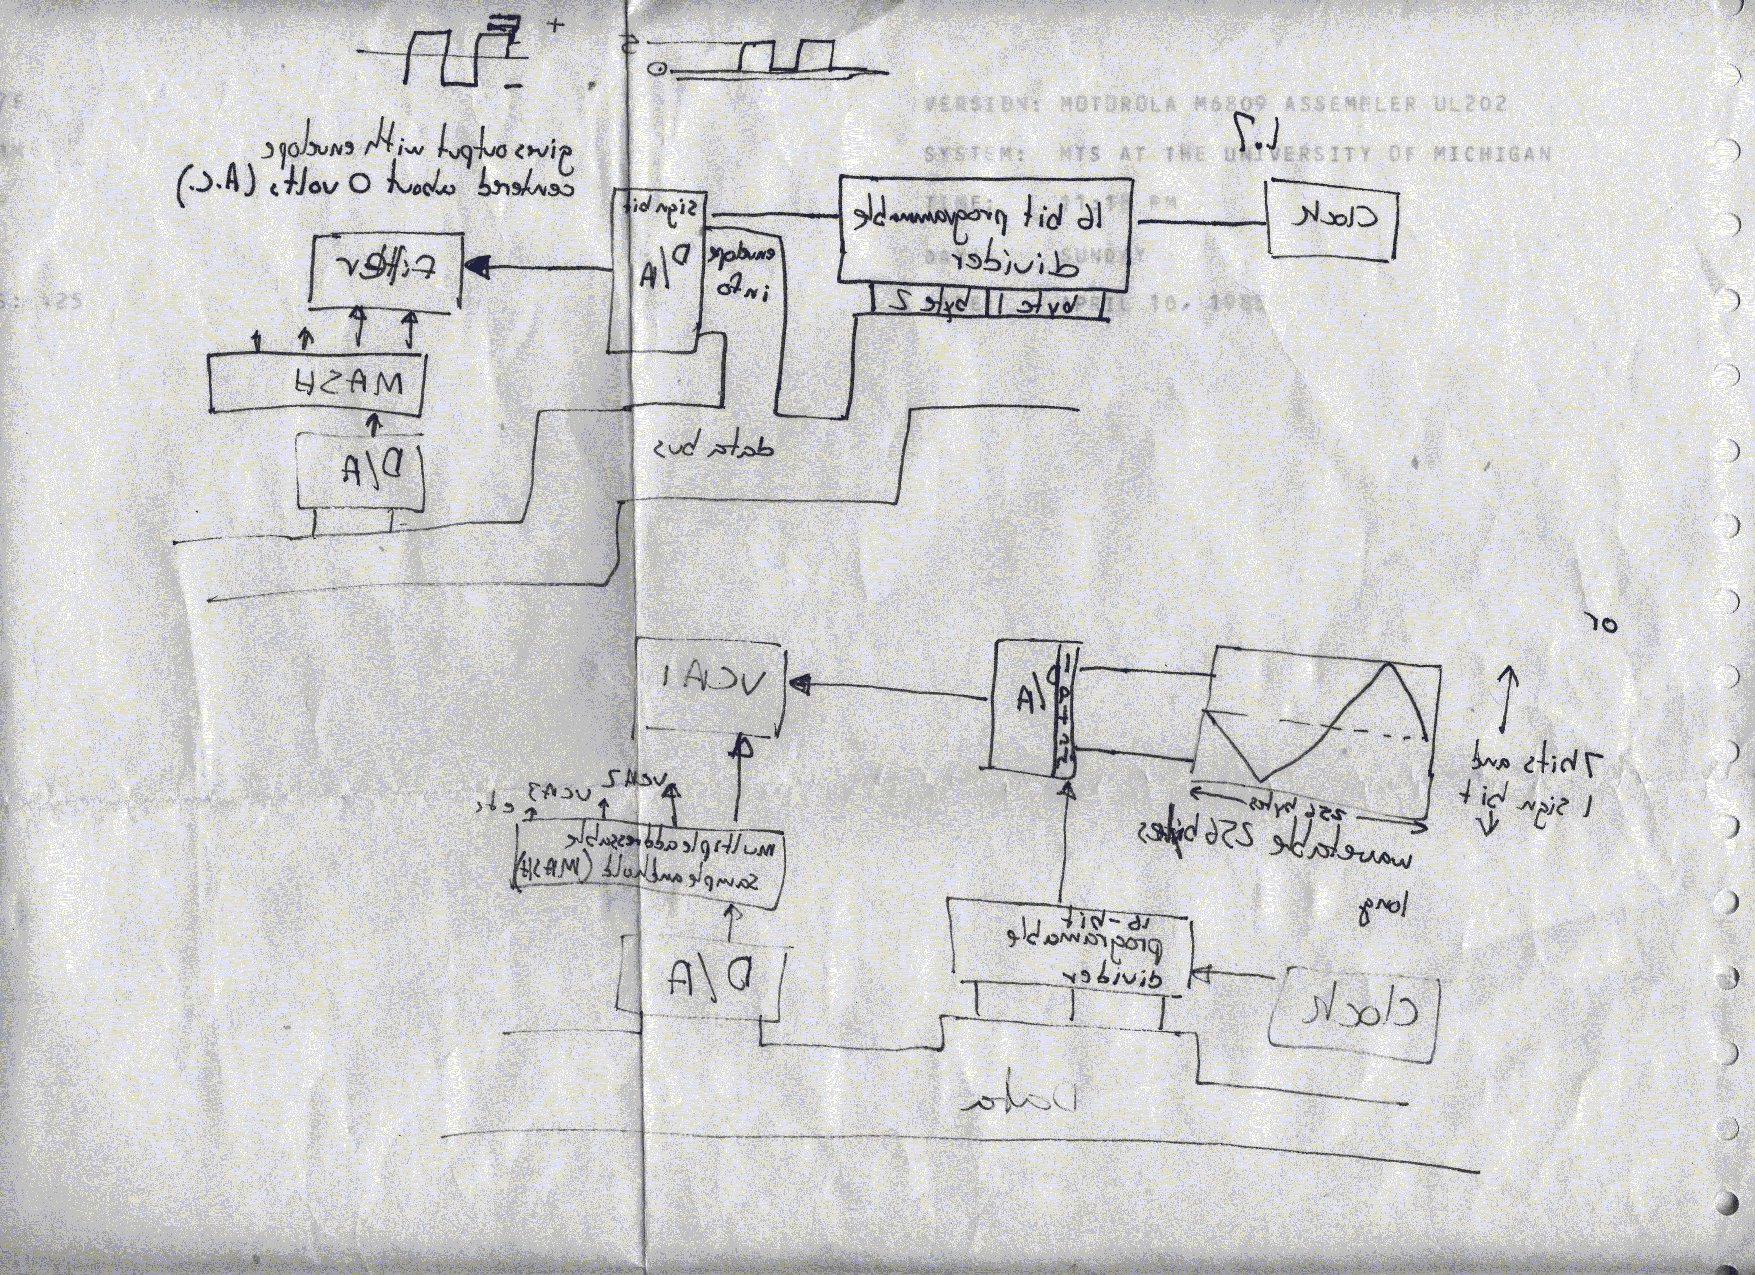 +
-
5
0
VERSION: MOTOROLA M6809 ASSEMBLER UL202
SYSTEM: MTS AT THE UNIVERSITY OF MICHIGAN
SUNDAY
APRIL 16,
gives output with envelope
centered about 0 volts, (A.C.)
1.7
Clock
16 bit programmable
divider
byte 1 byte 2
sign bit
D/A
envelope
info
filter
MASH
D/A
data bus
or
7 bits and
1 sign bit
256 bytes
wavetable 256 bytes
long
D/A
VCA 1
VCA2
VCA3
etc
multiple addressable
sample and hold (MASH)
D/A
16-bit
programable
divider
Clock
Data